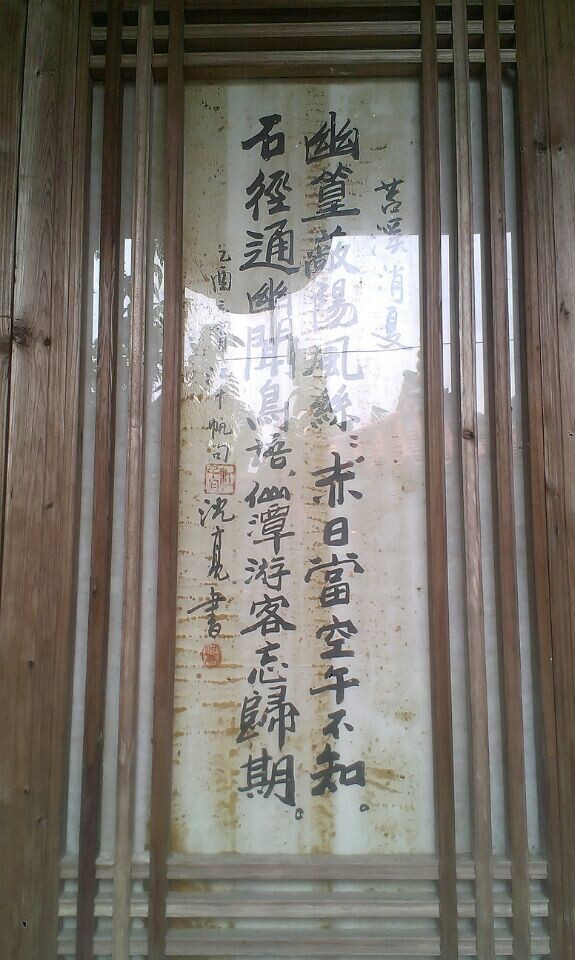 苕溪消夏
幽篁蔽陽風絲絲赤日當空午不知。
石徑通幽聞鳥語、仙潭游客忘歸期。
乙酉 千帆句
沈亮書